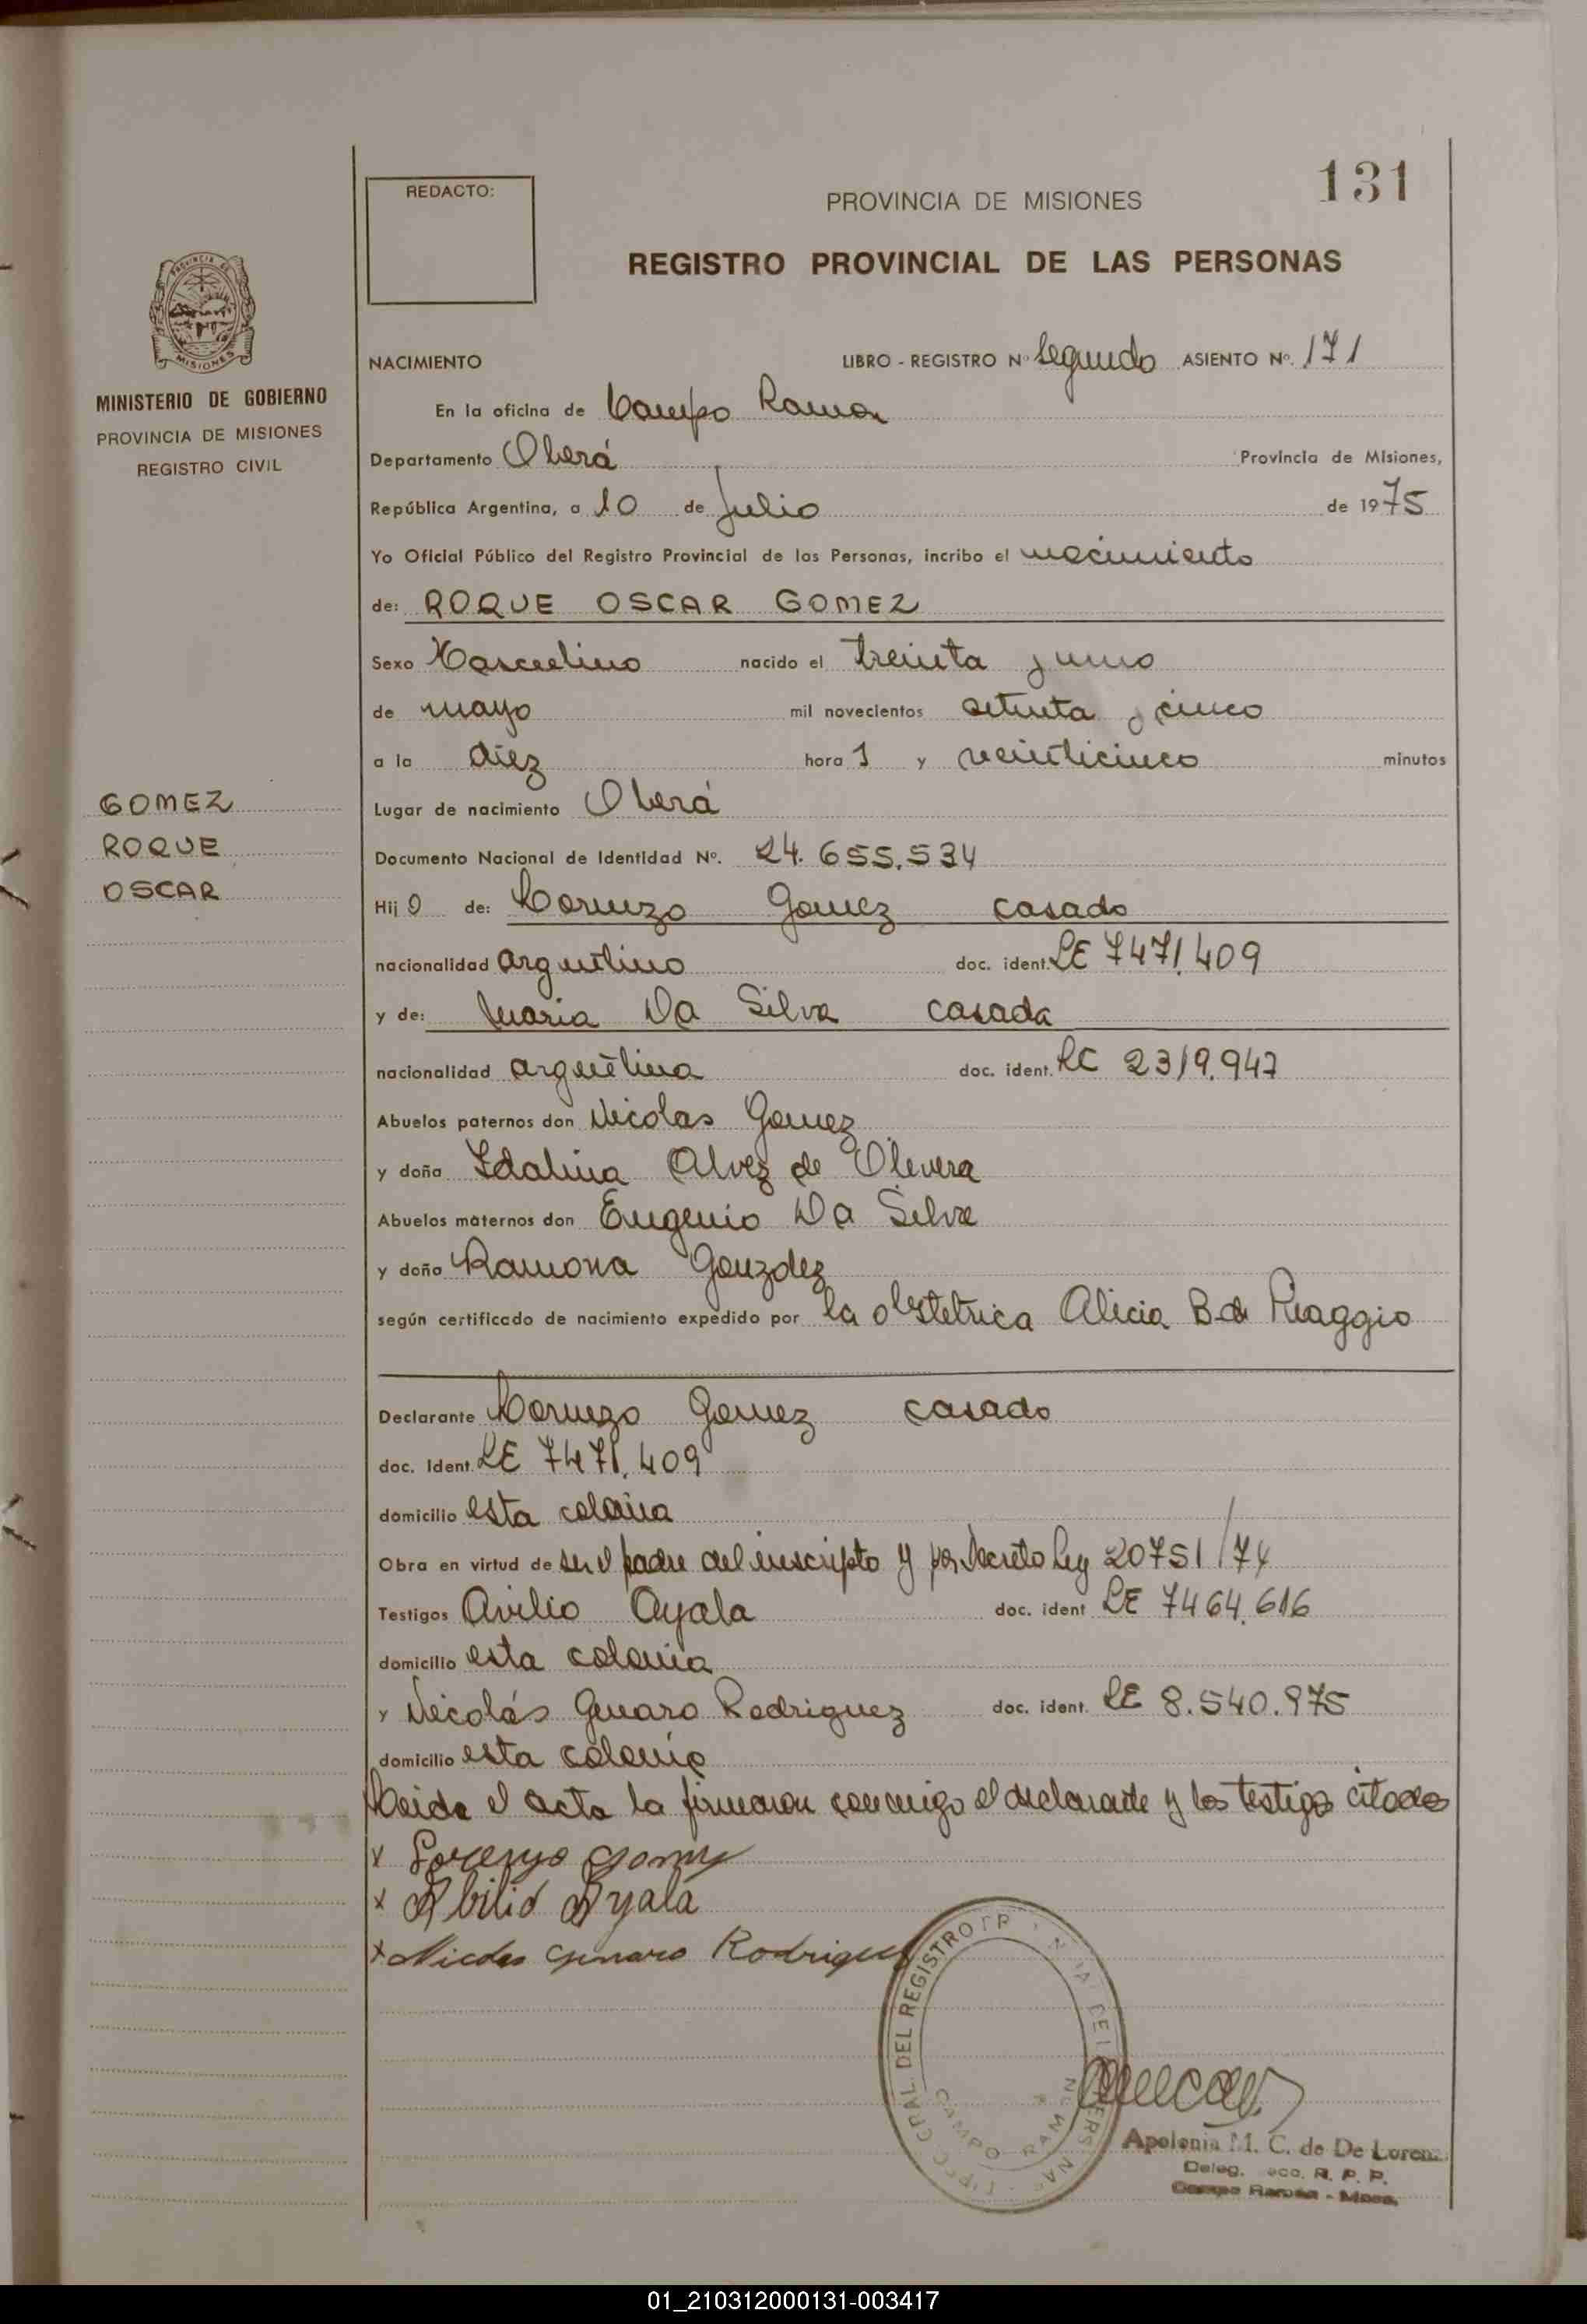 131
REDACTO:
PROVINCIA DE MISIONES
REGISTRO PROVINCIAL DE LAS PERSONAS
PROVINCIA DE
MISIONES
MINISTERIO DE GOBIERNO
PROVINCIA DE MISIONES
REGISTRO CIVIL
GOMEZ
ROQUE
OSCAR
NACIMIENTO LIBRO - REGISTRO Nº Segundo ASIENTO Nº. 171
En la oficina de Campo Ramon
Departamento Oberá Provincia de Misiones,
República Argentina, a 10 de Julio de 1975
Yo Oficial Público del Registro Provincial de las Personas, incribo el nacimiento
de: ROQUE OSCAR GOMEZ
Sexo Masculino nacido el treinta y uno
de mayo mil novecientos setenta y cinco
a la diez hora s y veinticinco minutos
Lugar de nacimiento Oberá
Documento Nacional de Identidad Nº. 24.655.534
Hij o de: Lorenzo Gomez casado
nacionalidad argentino doc. ident. LE 7471.409
y de: Maria Da Silva casada
nacionalidad argentina doc. ident. LC 2319.947
Abuelos paternos don Nicolas Gomez
y doña Idalina Alvez de Olivera
Abuelos maternos don Eugenio Da Silva
y doña Ramona Gonzalez
según certificado de nacimiento expedido por la obstetrica Alicia B. de Piaggio
Declarante Lorenzo Gomez casado
doc. Ident. LE 7471.409
domicilio esta colonia
Obra en virtud de ser el padre del inscripto y por Decreto Ley 20751/74
Testigos Avilio Ayala doc. ident LE 7464.616
domicilio esta colonia
y Nicolás Genaro Rodriguez doc. ident. LE 8.540.975
domicilio esta colonia
Leida el acta la firmaron conmigo el declarante y los testigos citados
x Lorenzo Gomez
x Abilio Ayala
x Nicolas Genaro Rodriguez
GRAL. DEL REGISTRO
CAMPO RAMON
Apolonia M. C. de De Loren
Deleg. R. P. P.
Campo Ramon - Mnes.
01_210312000131-003417